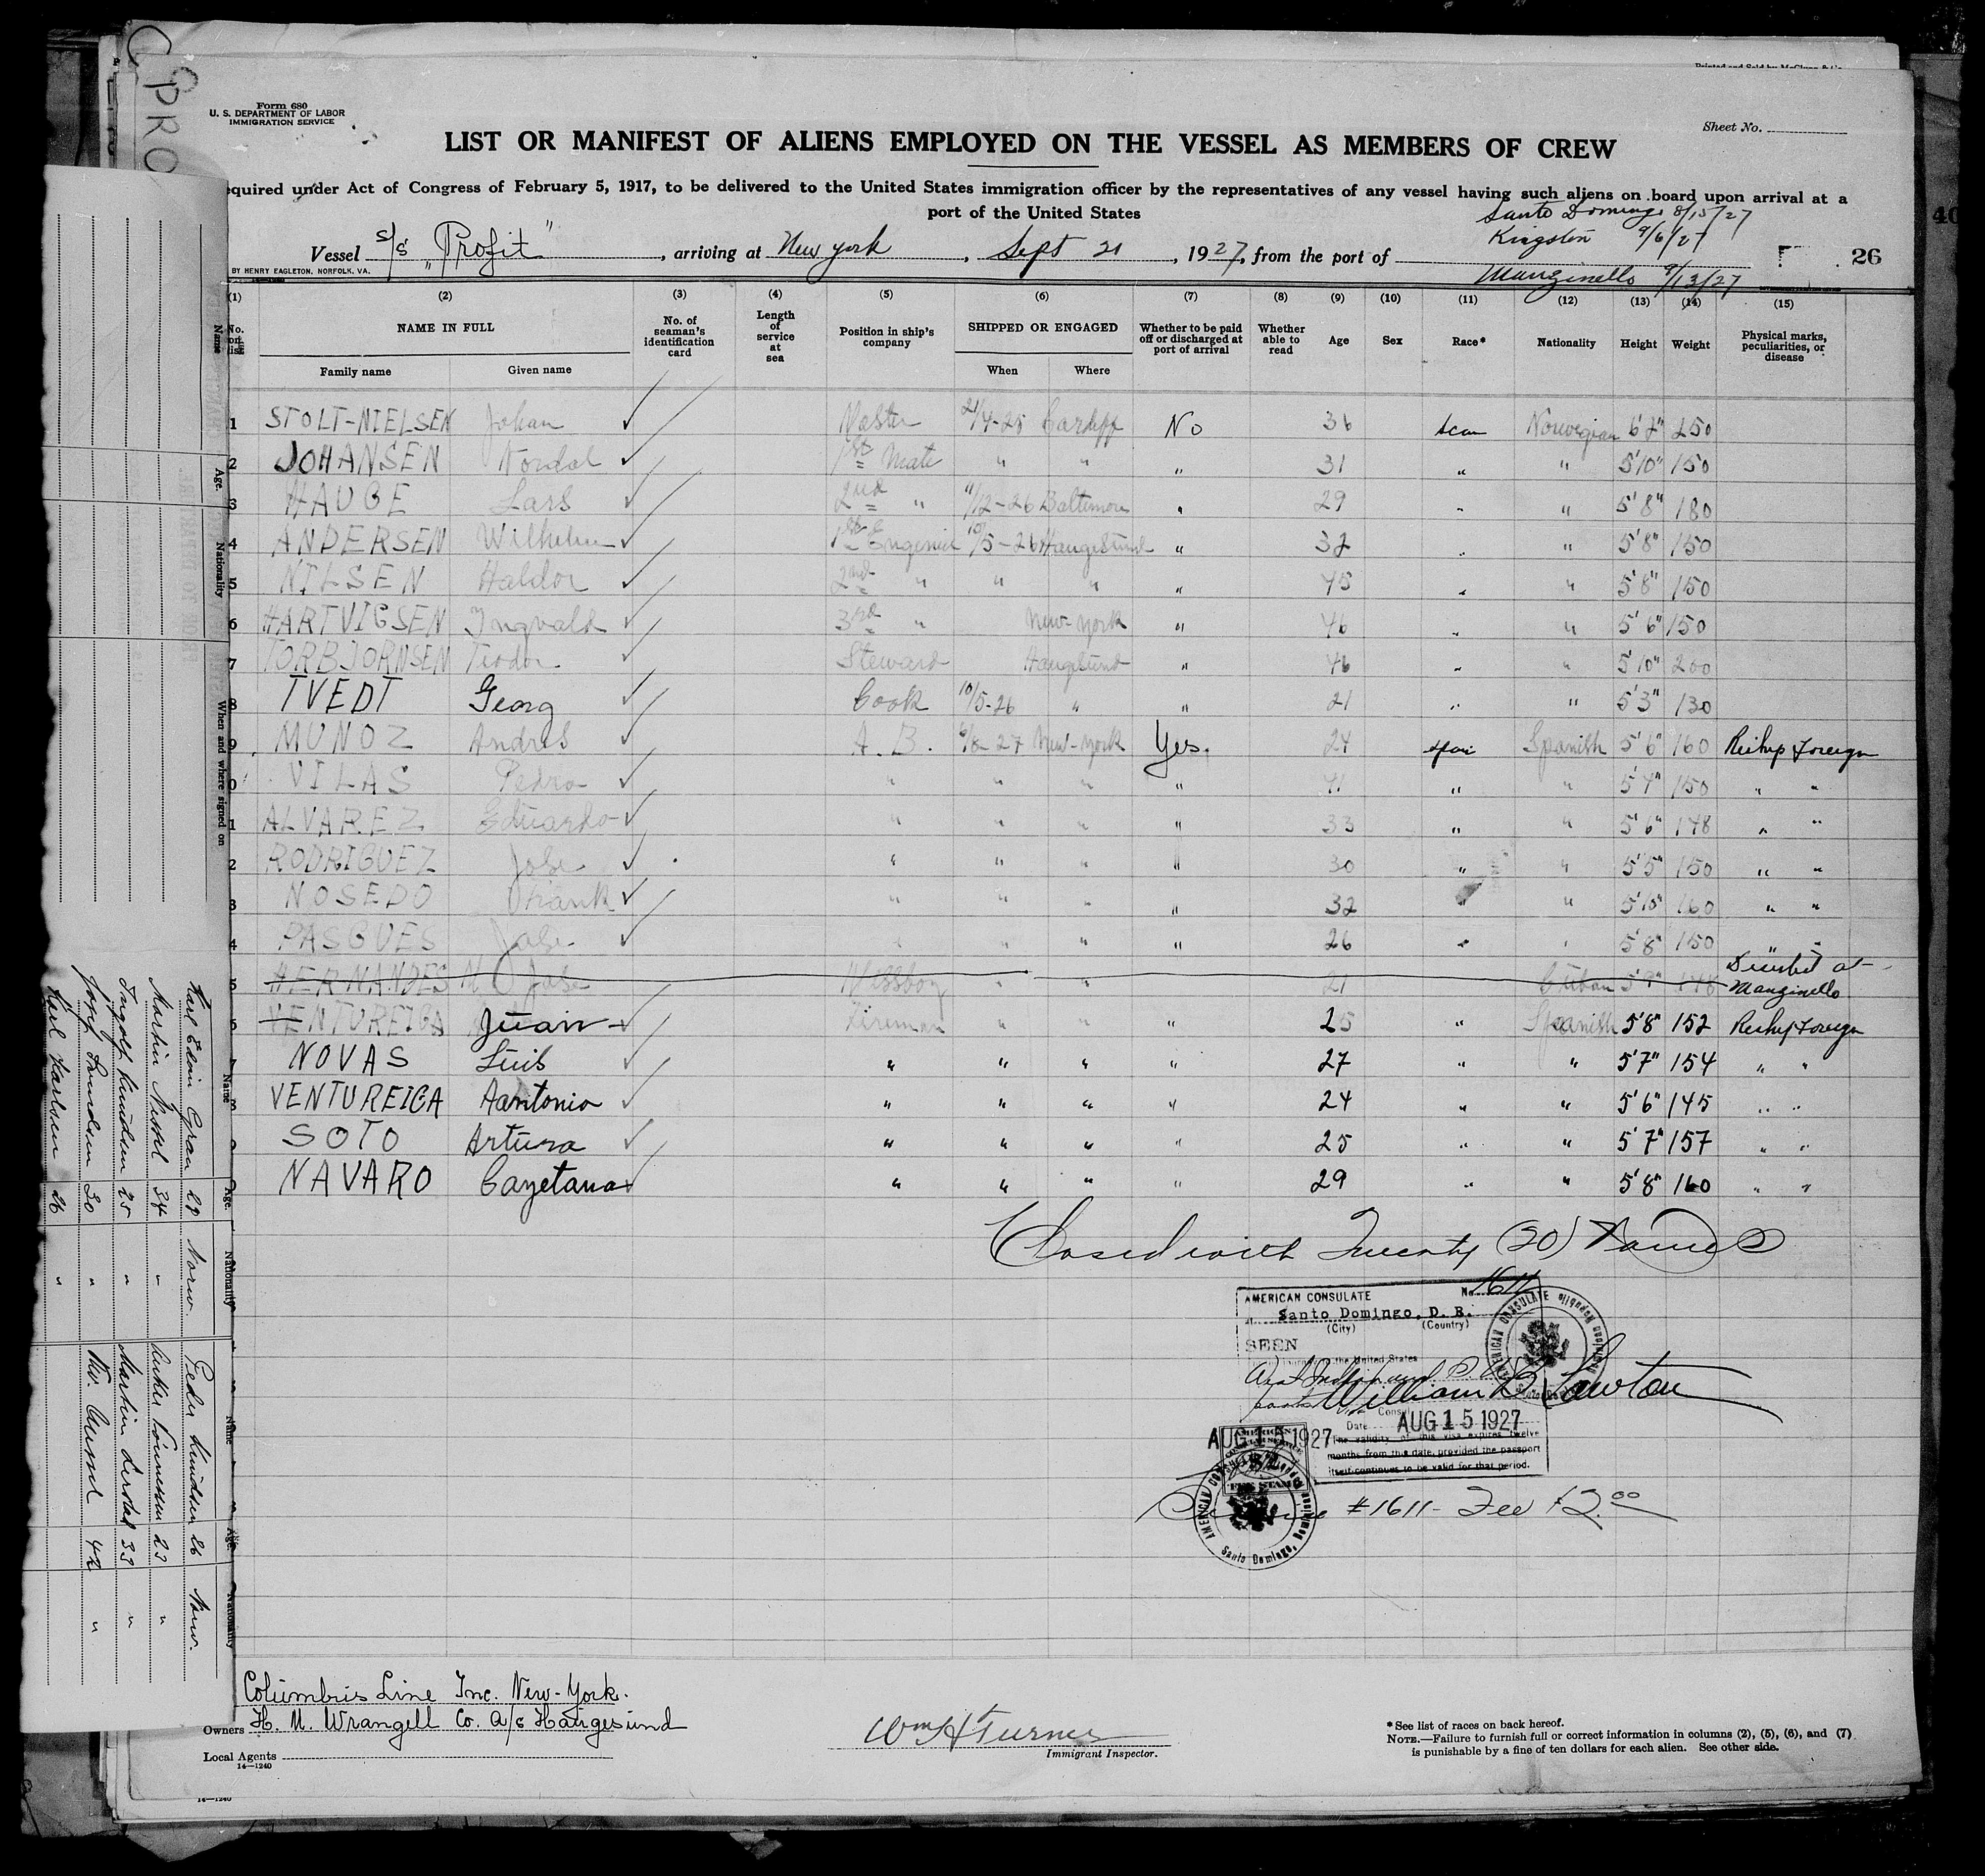 Form 680
U. S. DEPARTMENT OF LABOR
IMMIGRATION SERVICE
Sheet No.
LIST OR MANIFEST OF ALIENS EMPLOYED ON THE VESSEL AS MEMBERS OF CREW
equired under Act of Congress of February 5, 1917, to be delivered to the United States immigration officer by the representatives of any vessel having such aliens on board upon arrival at a
port of the United States
Santo Domingo 8/15/27
Kingston 9/6/27
Vessel S/S "Profit", arriving at New york, Sept 21, 1927, from the port of
Manzinello 9/13/27
26
BY HENRY EAGLETON, NORFOLK, VA.
(1) (2) (3) (4) (5) (6) (7) (8) (9) (10) (11) (12) (13) (14) (15)
NAME IN FULL
Family name Given name
No. of seaman's identification card
Length of service at sea
Position in ship's company
SHIPPED OR ENGAGED
When Where
Whether to be paid off or discharged at port of arrival
Whether able to read
Age Sex Race* Nationality Height Weight
Physical marks, peculiarities, or disease
1 STOLT-NIELSEN Johan ✓ Master 21/4-25 Cardiff No 36 scan Norwegian 6'2" 250
2 JOHANSEN Nordal ✓ 1st Mate " " " 31 " " 5'10" 150
3 HAUGE Lars ✓ 2nd " 11/12-26 Baltimore " 29 " " 5'8" 180
4 ANDERSEN Wilhelm ✓ 1st Engenier 10/5-26 Haugesund " 32 " " 5'8" 150
5 NILSEN Haldor ✓ 2nd " " " " 45 " " 5'8" 150
6 HARTVIGSEN Ingvald ✓ 3rd " New-york " 46 " " 5'6" 150
7 TORBJORNSEN Teodor ✓ Steward Haugesund " 46 " " 5'10" 200
8 TVEDT Georg ✓ Cook 10/5-26 " " 21 " " 5'3" 130
9 MUNOZ Andres A. B. 6/8-27 New-york Yes. 24 span Spanish 5'6" 160 Reship Foreign
0 VILAS Pedro ✓ " " " " 41 " " 5'4" 150 " "
1 ALVAREZ Eduardo ✓ " " " " 33 " " 5'6" 148 " "
2 RODRIGUEZ Jose ✓ " " " " 30 " " 5'5" 150 " "
3 NOSEDO Frank ✓ " " " " 32 " " 5'10" 160 " "
4 PASGUES Jose ✓ " " " " 26 " " 5'8" 150 " "
5 HERNANDES M. O Jose Messboy " " 21 Cuban 5'9" 148 Deserted at Manzinello
6 VENTUREIGA Juan ✓ Fireman " " " 25 " Spanish 5'8" 152 Reship Foreign
7 NOVAS Luis ✓ " " " " 27 " " 5'7" 154 " "
8 VENTUREIGA Aantonio ✓ " " " " 24 " " 5'6" 145 " "
9 SOTO Arturo ✓ " " " " 25 " " 5'7" 157 " "
NAVARO Cayetano ✓ " " " " 29 " " 5'8" 160 " "
Closed with Twenty (20) Names
AMERICAN CONSULATE No. 1611
at Santo Domingo, D. R.
(City) (Country)
SEEN
the United States
William B Lawton
Consul
Date AUG 15 1927
The validity of this visa expires twelve
months from this date, provided the passport
itself continues to be valid for that period.
AMERICAN CONSULATE
AUG 15 1927
FEE STAMP
AMERICAN CONSULATE Santo Domingo, Dominican Republic
#1611- Fee $2.00
Columbus Line Inc. New-York.
Owners H. M. Wrangell Co. A/S Haugesund
Local Agents
14-1240
Wm H Turner
Immigrant Inspector.
*See list of races on back hereof.
NOTE.—Failure to furnish full or correct information in columns (2), (5), (6), and (7)
is punishable by a fine of ten dollars for each alien. See other side.
14-1240
Name Age. Nationality When and where signed on
Name Age. Nationality Name Age. Nationality
Karl Edvin Gran 28 Norw. Peder Knudsen 26 Norw.
Martin Nessel 34 " 23 "
Ingolf Knudsen 25 " Martin 33 "
30 " 42 "
Karl Karlsen 26 "